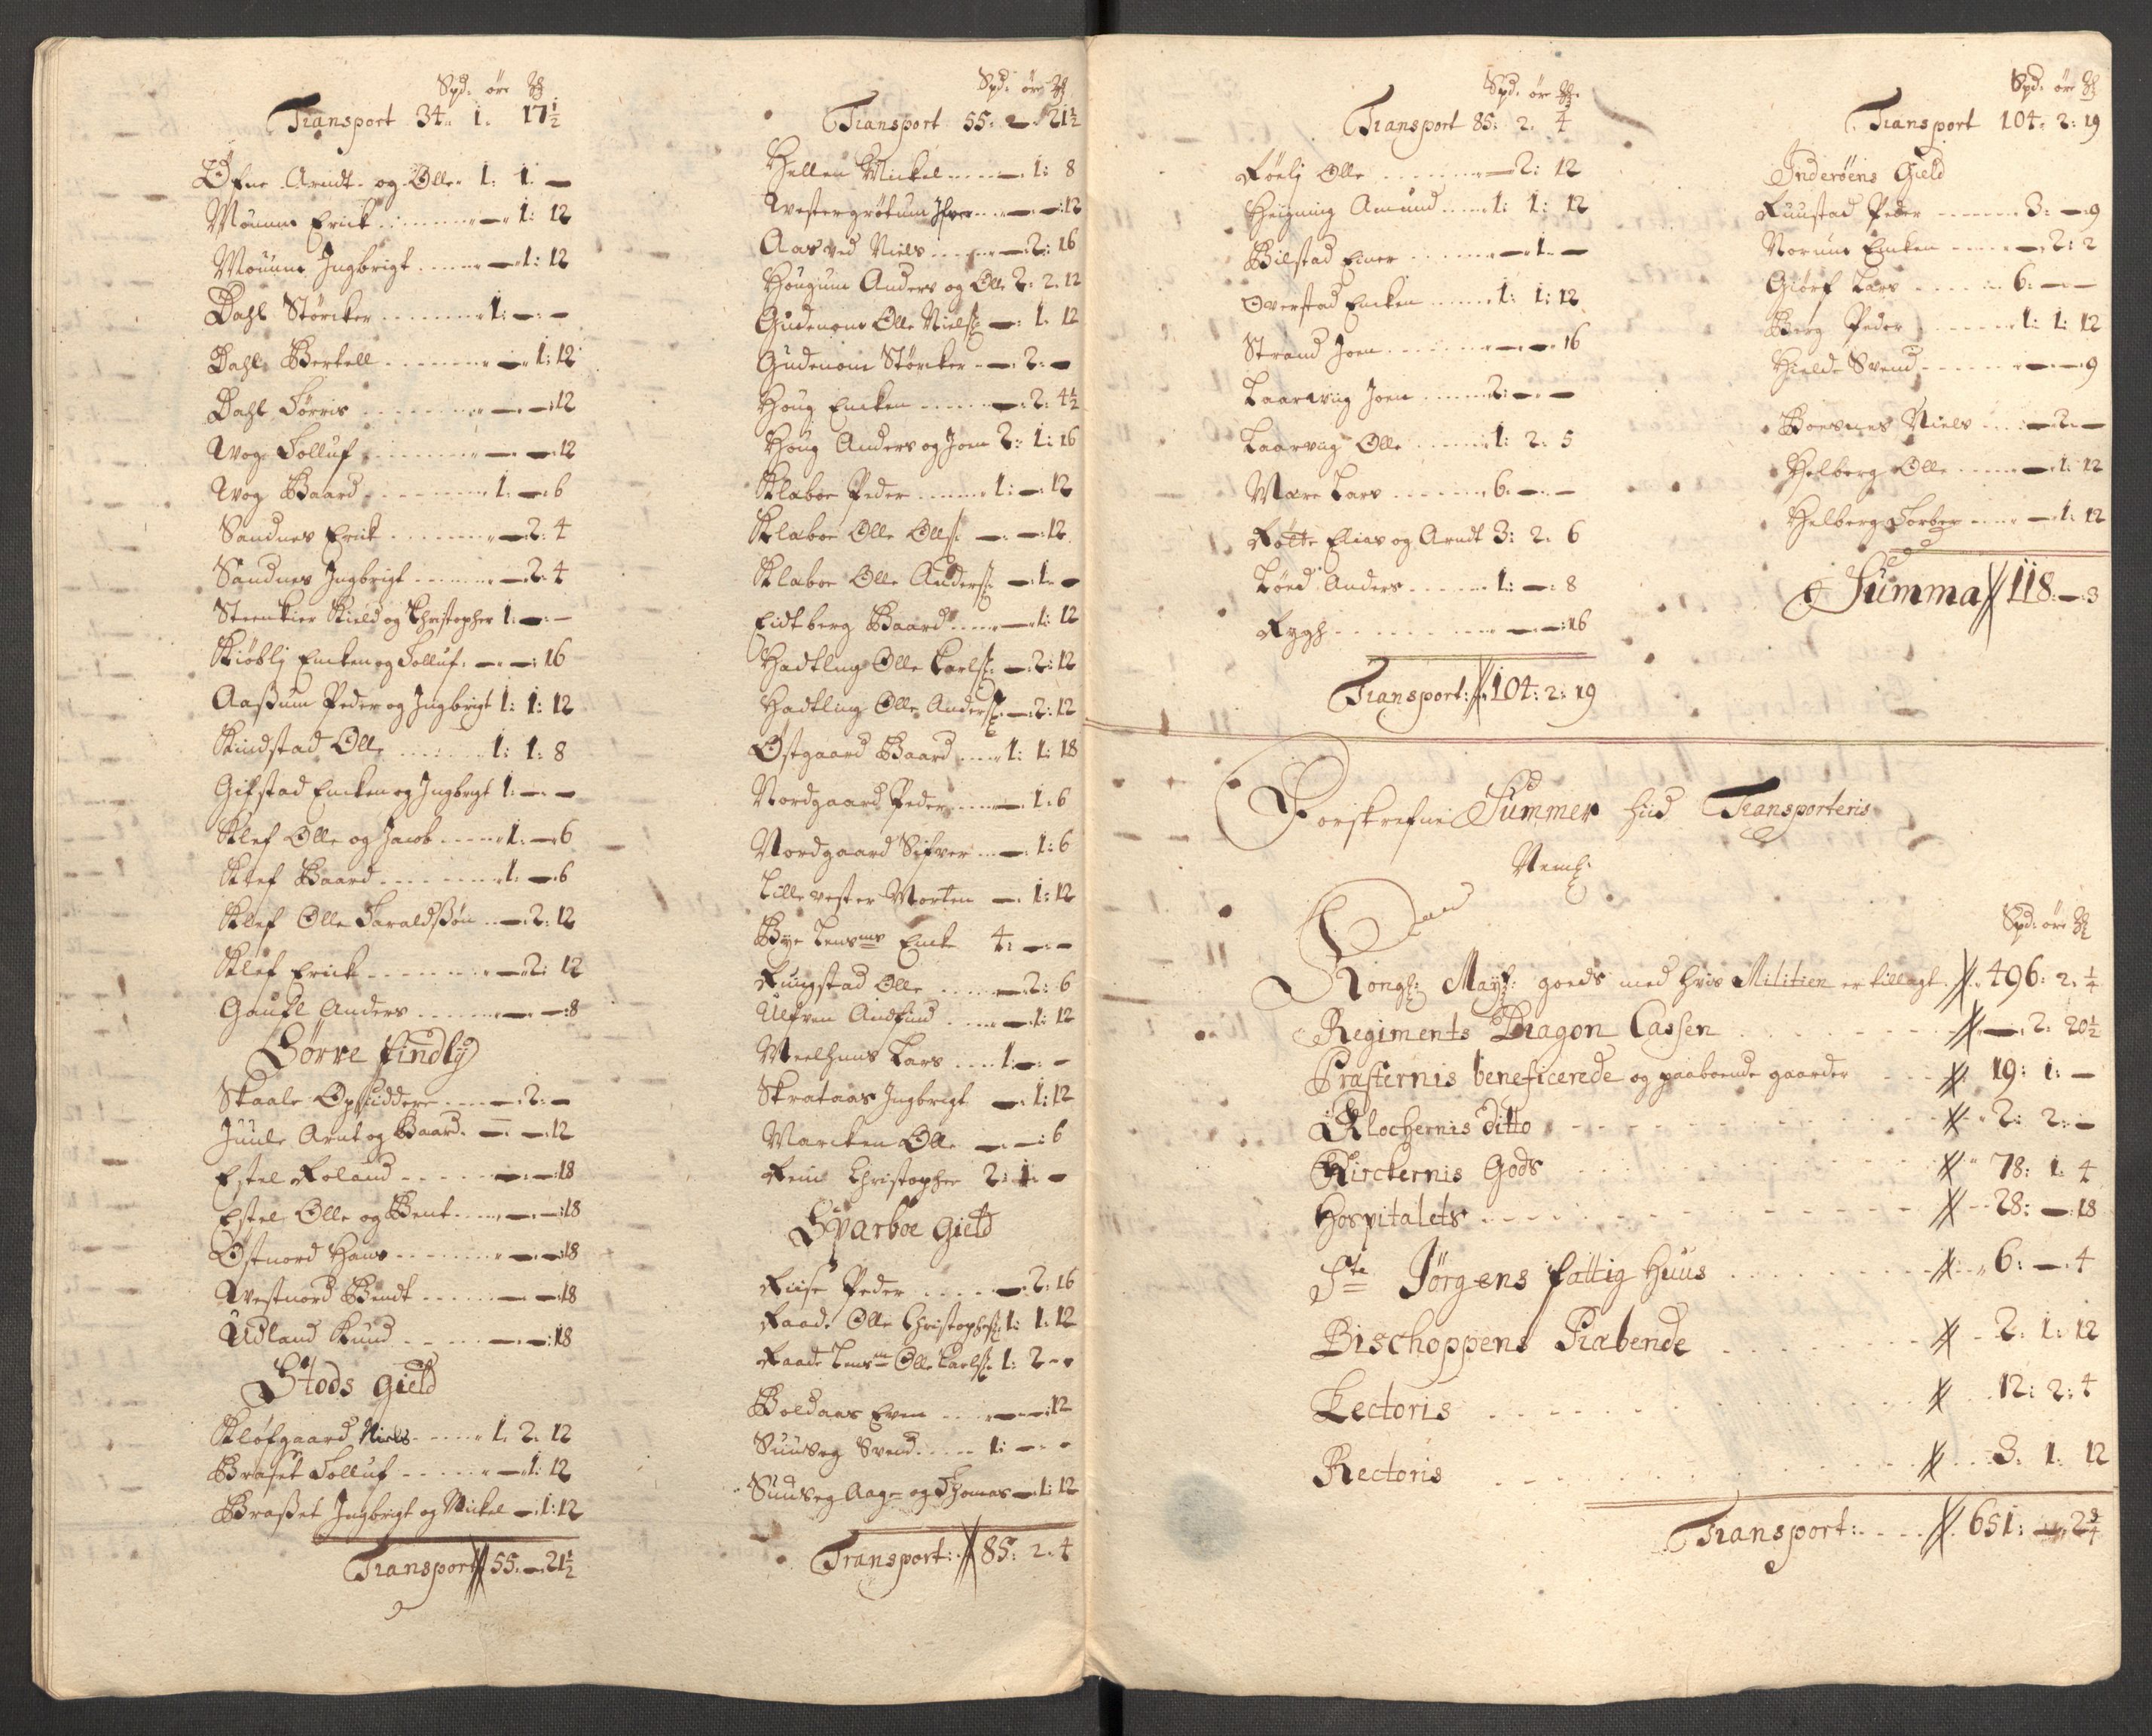 Spd. öre ₰
Transport 34. 1. 17½
Øfne Arndt og Olle 1: 1. —
Moumn Erick — 1: 12
Moumn Ingbrigt — 1: 12
Dahl Størcker 1: — : —
Dahl Bertell — 1: 12
Dahl Torris — — : 12
Wog Tolluf — — 12
Wog Baard 1. — 6
Sandnes Erick — 2. 4
Sandnes Ingbrigt — 2. 4
Steenkier Kield og Christopher 1. — : —
Kiøblj Encken og Tolluf. — — : 16
Aassum Peder og Ingbrigt 1: 1: 12
Kindstad Olle 1: 1: 8
Gifstad Encken og Ingbrigt 1: — . —
Klef Olle og Jacob 1. — 6
Klef Baard 1. — 6
Klef Olle Haraldssøn — 2: 12
Klef Erick — 2: 12
Gaufl Anders — — : 8
Skaale Opsiddere — 2: —
Juule Arnt og Baard. — — 12
Estel Roland — : — 18
Estel Olle og Bent — : — 18
Østnord Hans — — 18
Westnord Bendt — — 18
Udland Knud — — : 18
Stods gield
Kløfgaard Niels 1. 2. 12
Braset Tolluf — 1: 12
Brasset Ingbrigt og Mickel — 1: 12
Transport 55. — . 21½
Spd. öre ₰
Transport 55. — . 21½
Hellen Mickel — 1: 8
Westergrøtum Ifver — — : 12
Aasved Niels — 2: 16
Hougum Anders og Olle 2: 2. 12
Gudenom Olle Niels: — : 1. 12
Gudenom Størcker — 2: —
Houg Encken — 2: 4½
Houg Anders og Joen 2: 1: 16
Klaboe Peder 1: — 12
Klaboe Olle Olls: — . — 12
Klaboe Olle Anders: — 1. —
Eidtberg Baard — 1: 12
Hadtling Olle Carls: — . 2: 12
Hadtling Olle Anders: — 2: 12
Østgaard Baard 1: 1: 18
Nordgaard Peder — 1. 6
Nordgaard Sifver — 1: 6
Lillevester Morten — . 1: 12
Bye Lensms Encke 4: — . —
Rungstad Olle — 2: 6
Ulfven Andfind — 1: 12
Meelhuus Lars 1: — : —
Skrataas Ingbrigt — . 1: 12
Marcken Olle — . — : 6
Rein Christopher 2: 1. —
Sparboe gield
Riise Peder — 2: 16
Raade Olle Christophs: 1: 1. 12
Raade Lensm Olle Carls: 1: 2 — .
Boldaas Even — — : 12
Sundseg Svend 1: — . —
Sundseg Aage og Thomas — 1: 12
Transport: 85: 2. 4
Spd. öre ₰
Transport 85. 2. 4
Røelj Olle — 2: 12
Heigning Amund 1: 1: 12
Bilstad Einer — 1. —
Overstad Encken 1: 1: 12
Strand Joen — . — 16
Laarwiig Joen 2: — . —
Laarwiig Olle 1: 2. 5
Mære Lars 6. — . —
Røtte Elias og Arndt 3: 2. 6
Løed Anders 1: — : 8
Rygh — . — : 16
Transport: 104: 2: 19
Spd. öre ₰
Transport 104. 2: 19
Inderøens Gield
Ruustad Peder 3: — 9
Norum Encken — 2: 2
Giørf Lars 6: — . —
Berg Peder 1: 1: 12
Hielde Svend — . — 9
Boesnes Niels — 2: —
Helberg Olle — 1: 12
Helberg Torber — 1: 12
Summa 118. — . 3
Forskrefne Summer hid Transporteris
Neml:
Spd: öre ₰
Kongl: Mayts: goeds med hvis Militien er tillagt 496: 2. ¼
Regiments Dragon Cassen — . 2: 20½
Præsternis beneficerede og paaboende gaarder 19: 1: —
Klockernis ditto 2: 2: —
Kirckernis Gods 78: 1. 4
Hospitalets 28: — 18
Ste Jörgens fattig Huus 6: — . 4
Bischoppens Præbende 2: 1: 12
Lectoris 12: 2: 4
Rectoris 3. 1. 12
Transport: 651: — . 2¾